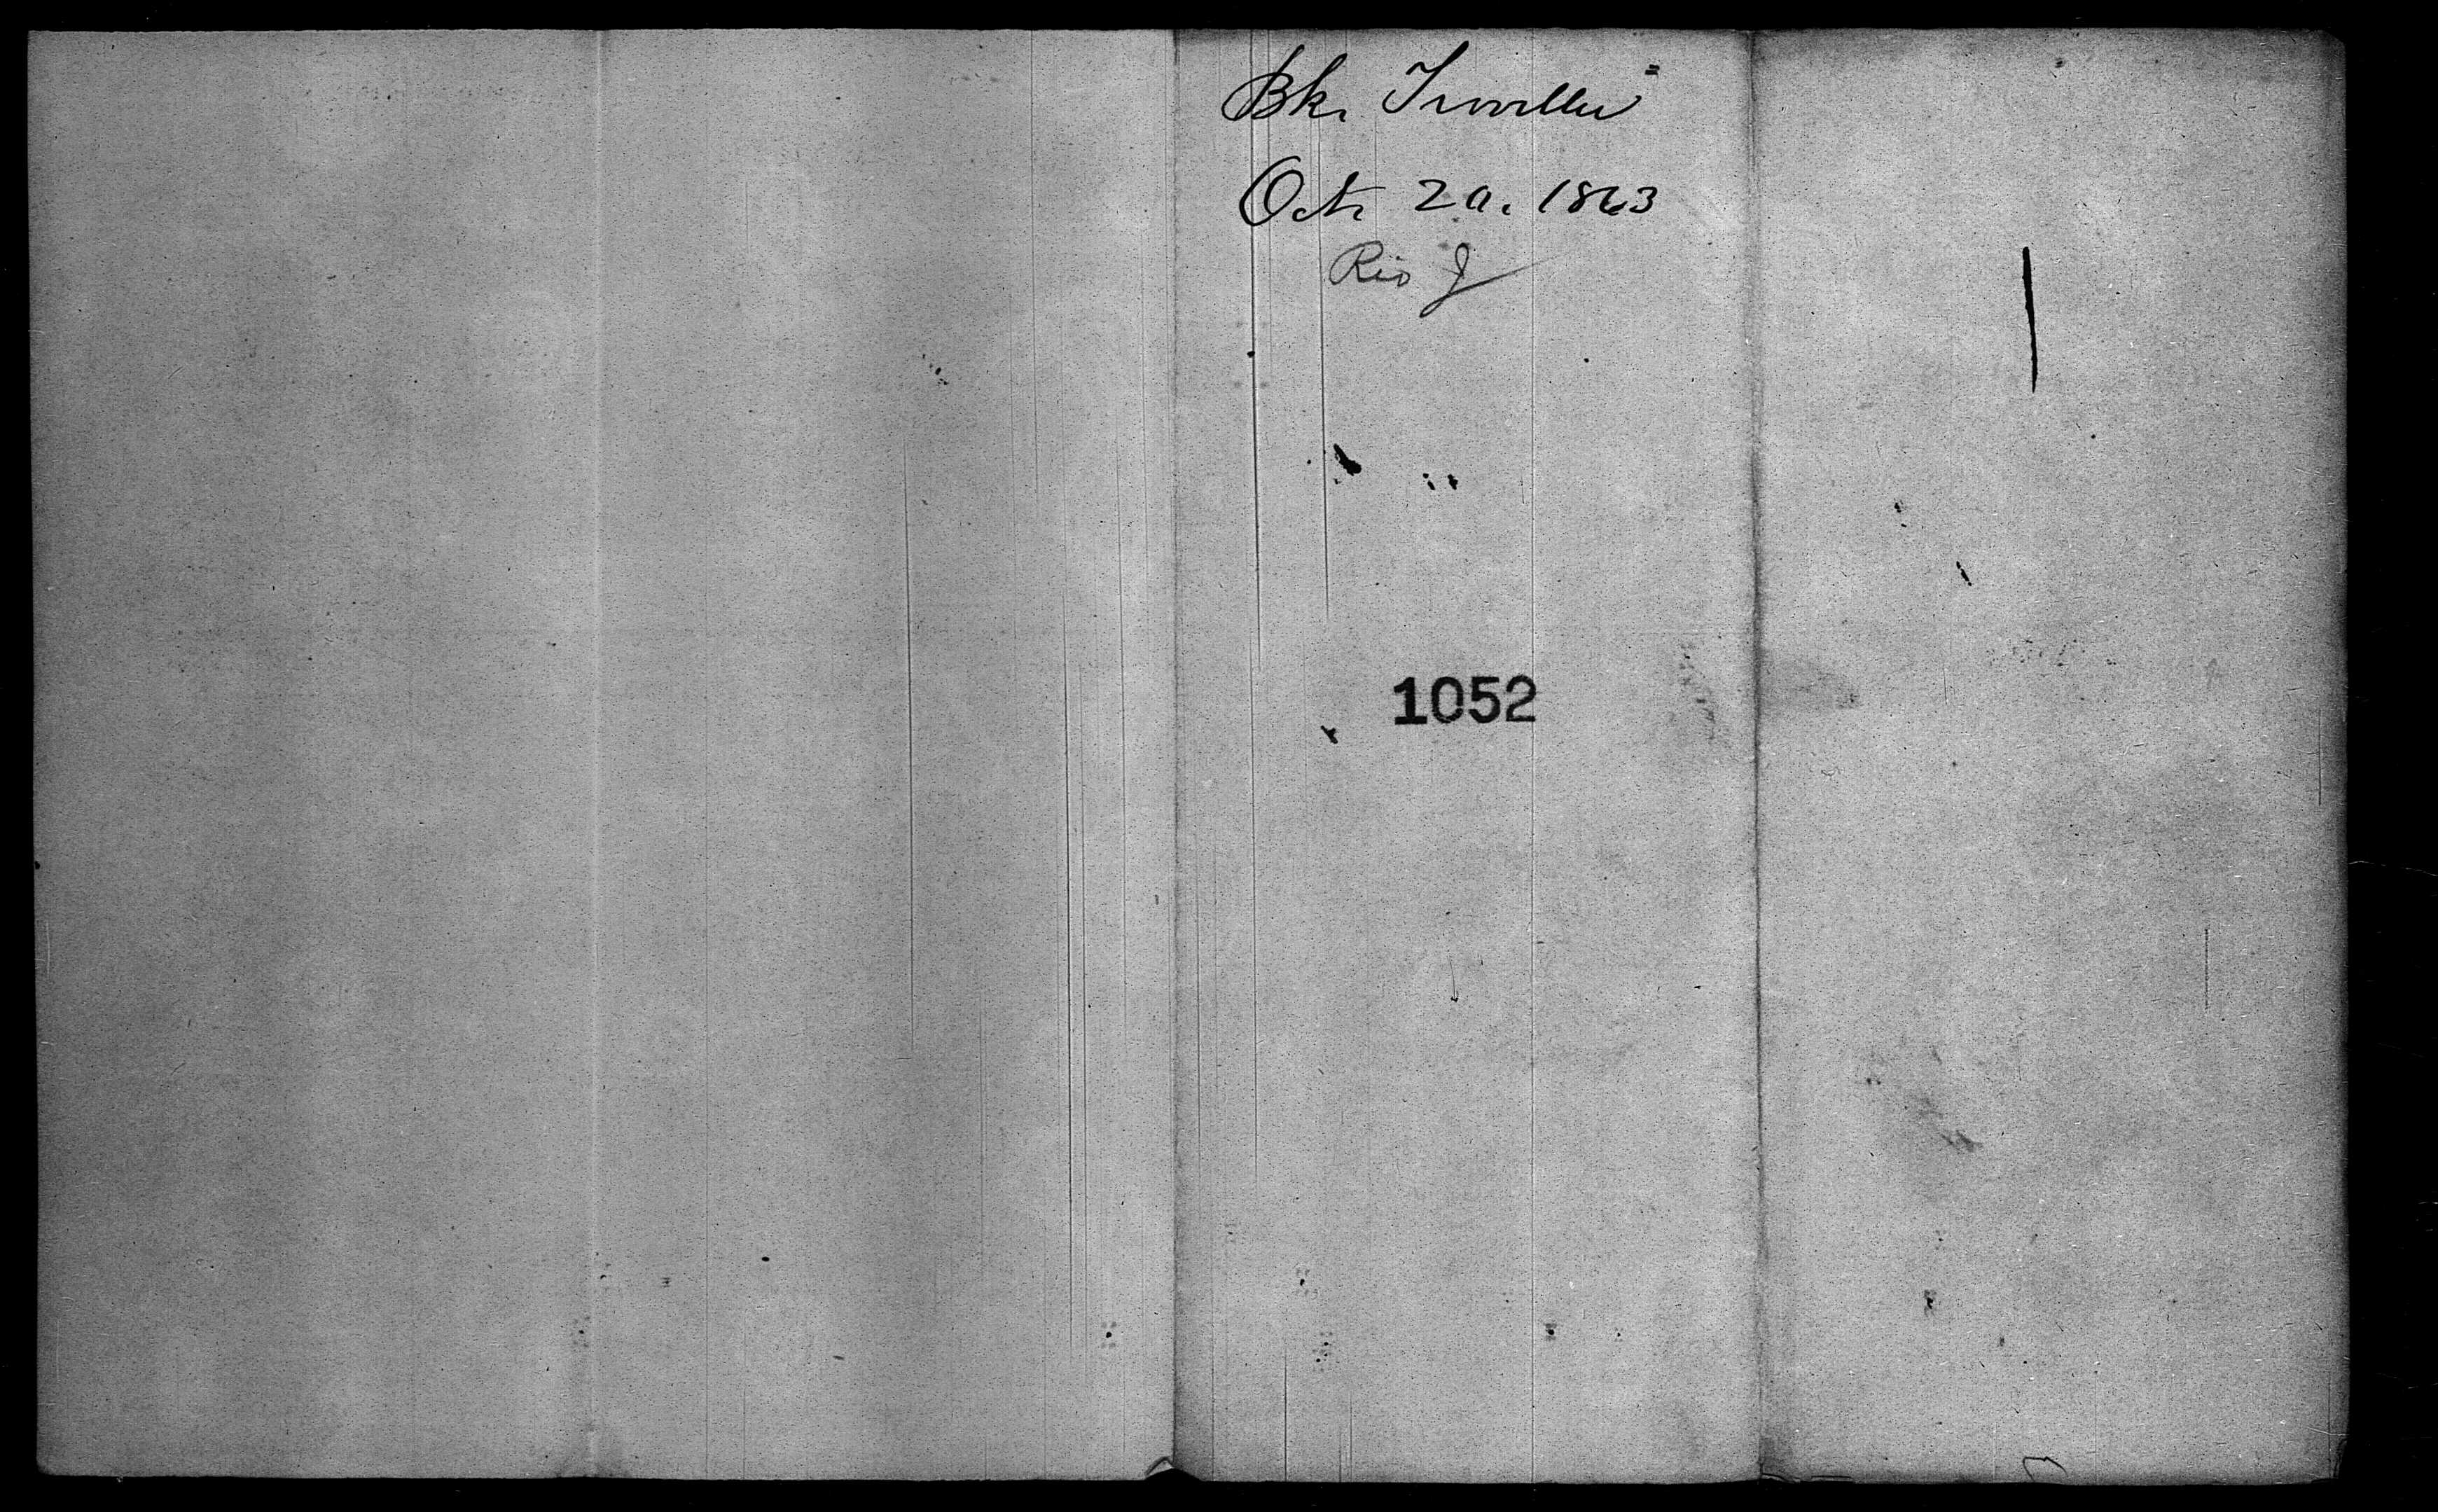 Bk. Traveller
Oct. 20. 1863
Rio J
1052